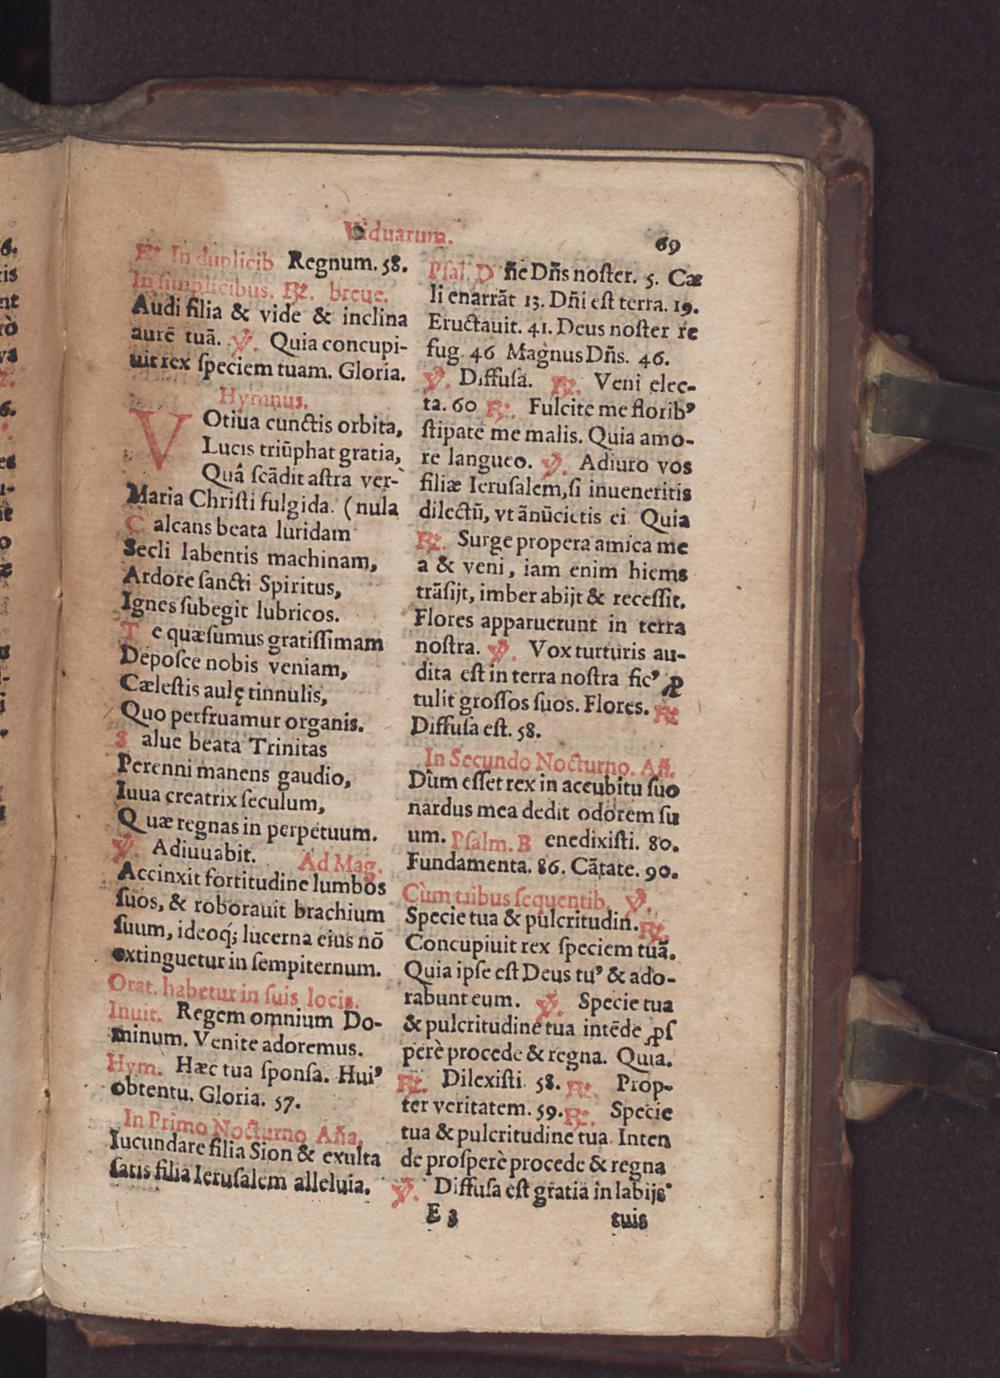 Viduarum.
69
℟. In duplicib Regnum. 58.
In simplicibus. ℟. breue.
Audi filia & vide & inclina
aurē tuā. ℣. Quia concupi-
uit rex ſpeciem tuam. Gloria.
Hymnus.
VOtiua cunctis orbita,
Lucis triūphat gratia,
Quā ſcādit aſtra ver-
Maria Chriſti fulgida. (nula
Calcans beata luridam
Secli labentis machinam,
Ardore ſancti Spiritus,
Ignes ſubegit lubricos.
Te quæſumus gratiſſimam
Depoſce nobis veniam,
Cæleſtis aulę tinnulis,
Quo perfruamur organis.
Salue beata Trinitas
Perenni manens gaudio,
Iuua creatrix ſeculum,
Quæ regnas in perpetuum.
℣. Adiuuabit. Ad Mag.
Accinxit fortitudine lumbos
ſuos, & roborauit brachium
ſuum, ideoq; lucerna eius nō
extinguetur in ſempiternum.
Orat. habetur in ſuis locis.
Inuit. Regem omnium Do-
minum. Venite adoremus.
Hym. Hæc tua ſponſa. Huiꝰ
obtentu. Gloria. 57.
In Primo Nocturno Aña.
Iucundare filia Sion & exulta
ſatis filia Ieruſalem alleluia.
Pſal. D ñe Dñs noſter. 5. Cæ
li enarrāt 13. Dñi eſt terra. 19.
Eructauit. 41. Deus noſter re
fug. 46 Magnus Dñs. 46.
℣. Diffuſa. ℟. Veni elec-
ta. 60 ℟. Fulcite me floribꝰ
ſtipate me malis. Quia amo-
re langueo. ℣. Adiuro vos
filiæ Ieruſalem, ſi inueneritis
dilectū, vt ānūcietis ei Quia
℟. Surge propera amica me
a & veni, iam enim hiems
trāſijt, imber abijt & receſſit.
Flores apparuerunt in terra
noſtra. ℣. Vox turturis au-
dita eſt in terra noſtra ficꝰ ꝓ
tulit groſſos ſuos. Flores. ℟
Diffuſa eſt. 58.
In Secundo Nocturno. Añ.
Dùm eſſet rex in accubitu ſuo
nardus mea dedit odorem ſu
um. Pſalm. B enedixiſti. 80.
Fundamenta. 86. Cātate. 90.
Cùm tribus ſequentib. ℣.
Specie tua & pulcritudiñ. ℟.
Concupiuit rex ſpeciem tuā.
Quia ipſe eſt Deus tuꝰ & ado-
rabunt eum. ℣. Specie tua
& pulcritudine tua intēde ꝓſ
perè procede & regna. Quia.
℟. Dilexiſti 58. ℟. Prop-
ter veritatem. 59. ℟. Specie
tua & pulcritudine tua Inten
de proſperè procede & regna
℣. Diffuſa eſt gratia in labijs
E 3
tuis